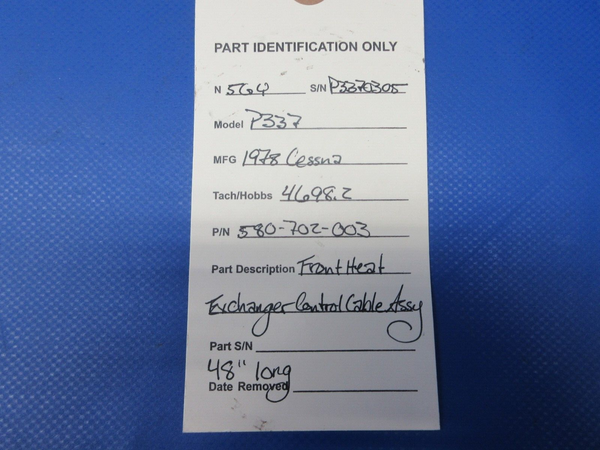 PART IDENTIFICATION ONLY
N 564 S/N P3370305
Model P337
MFG 1978 Cessna
Tach/Hobbs 4698.2
P/N 580-702-003
Part Description Front Heat
Exchanger Control Cable Assy
Part S/N
48" long
Date Removed